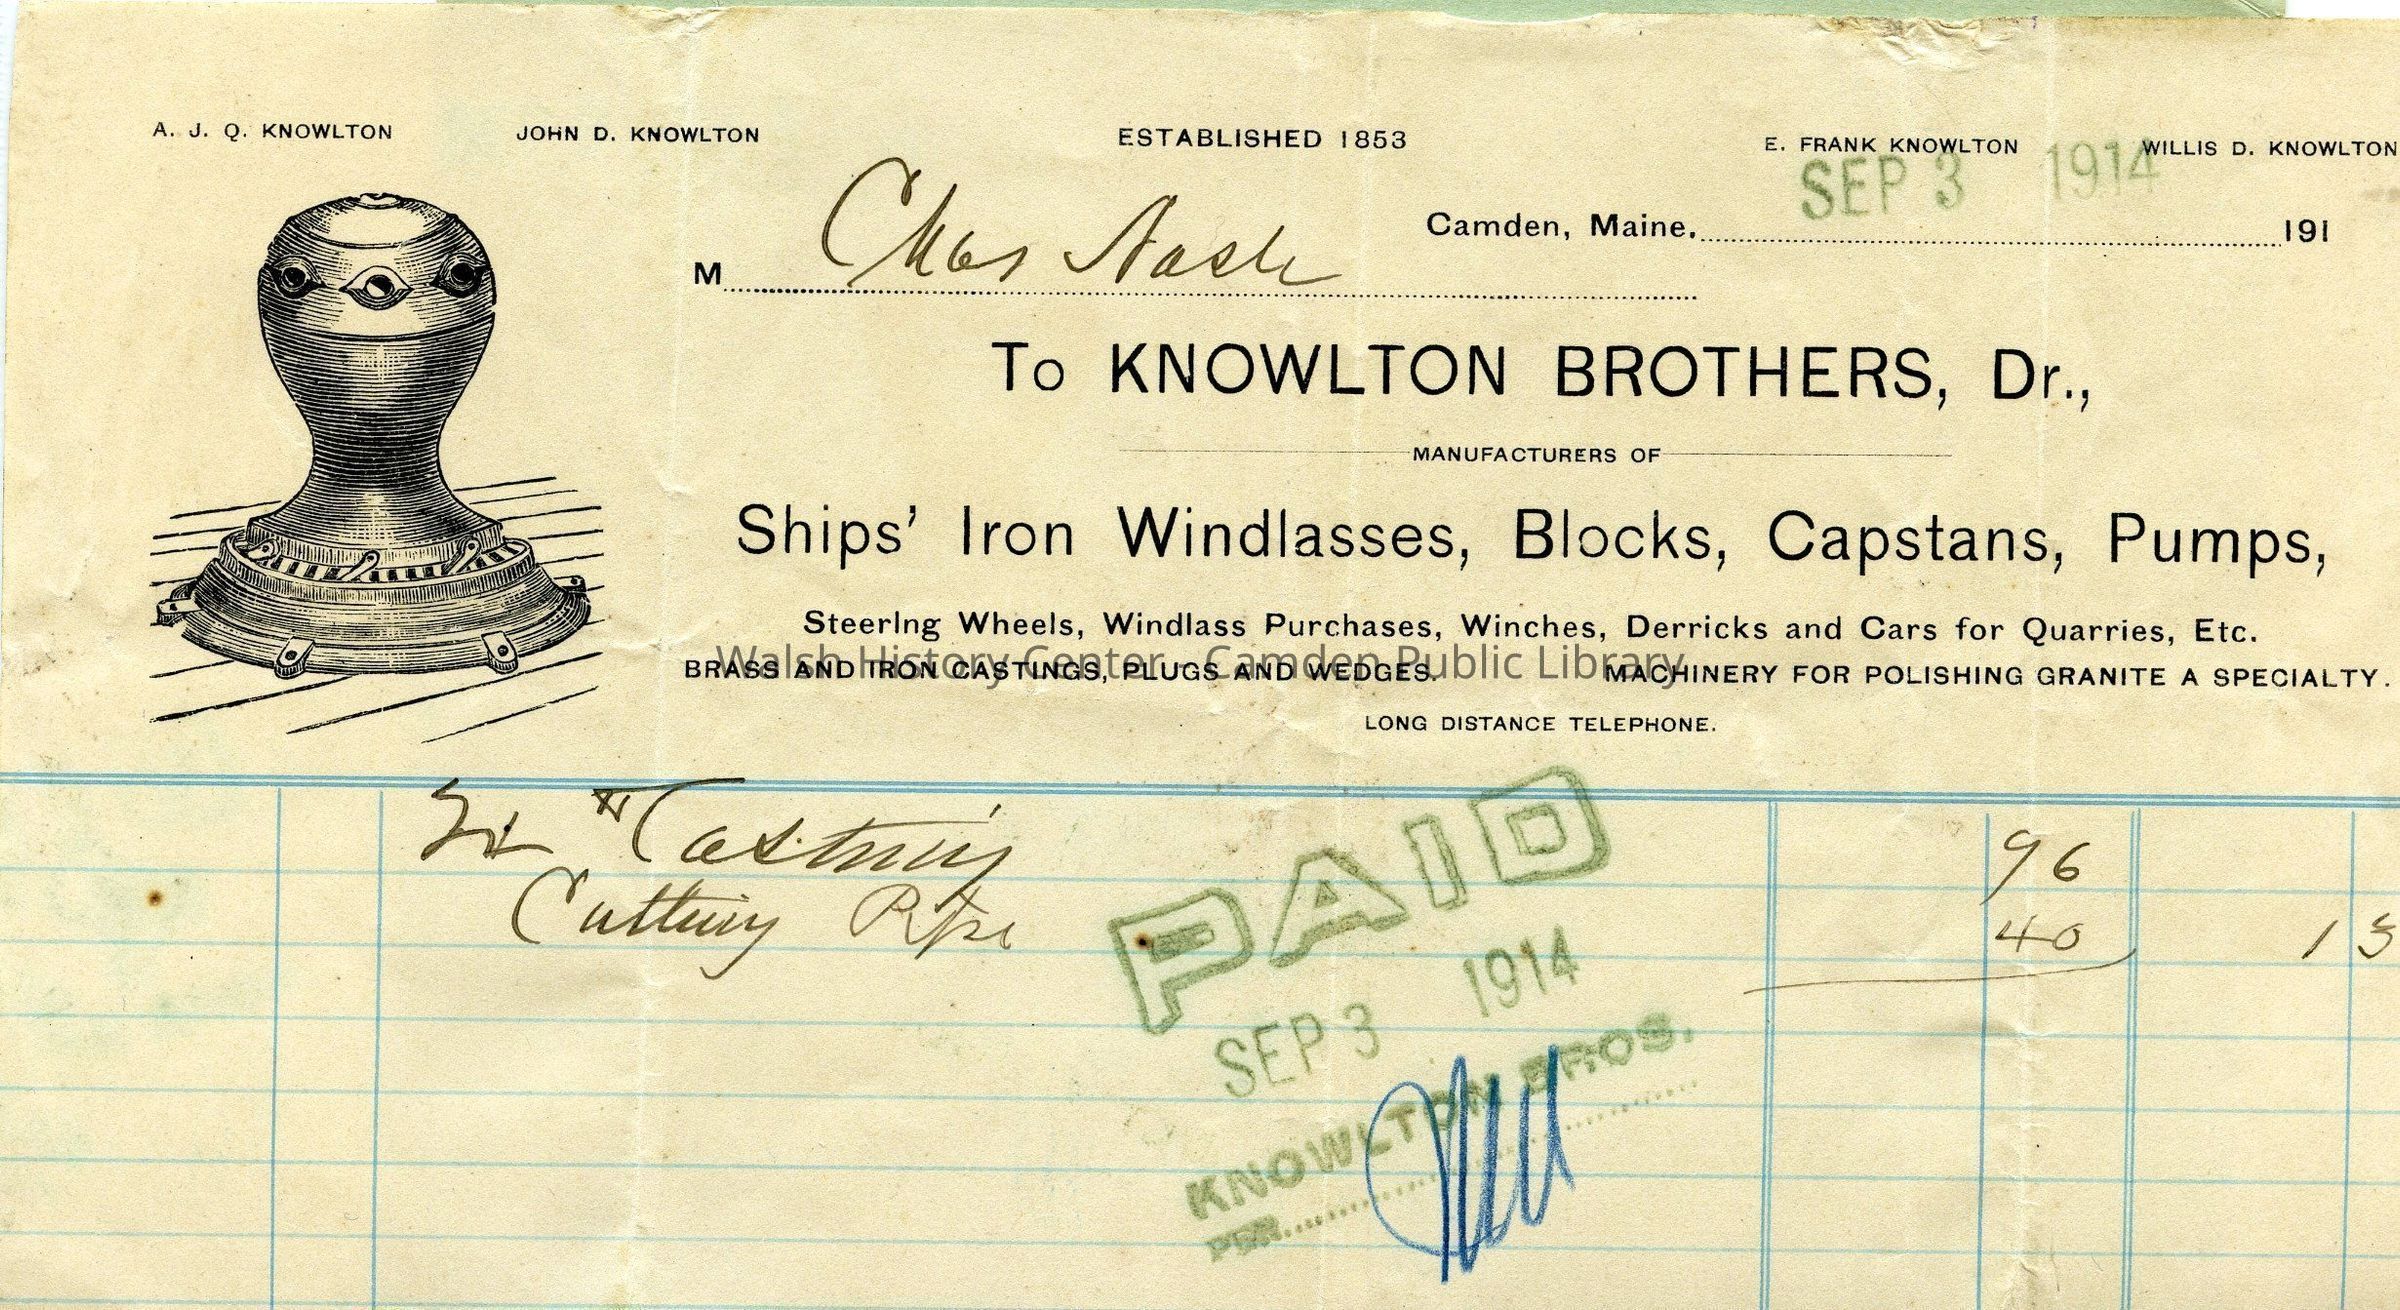 A. J. Q. KNOWLTON JOHN D. KNOWLTON ESTABLISHED 1853 E. FRANK KNOWLTON WILLIS D. KNOWLTON
SEP 3 1914
Camden, Maine. 191
M Chas Nash
To KNOWLTON BROTHERS, Dr.,
MANUFACTURERS OF
Ships' Iron Windlasses, Blocks, Capstans, Pumps,
Steering Wheels, Windlass Purchases, Winches, Derricks and Cars for Quarries, Etc.
Walsh History Center - Camden Public Library
BRASS AND IRON CASTINGS, PLUGS AND WEDGES. MACHINERY FOR POLISHING GRANITE A SPECIALTY.
LONG DISTANCE TELEPHONE.
Casting 96
Cutting Pipe 40 1 3
PAID
SEP 3 1914
KNOWLTON BROS.
PER